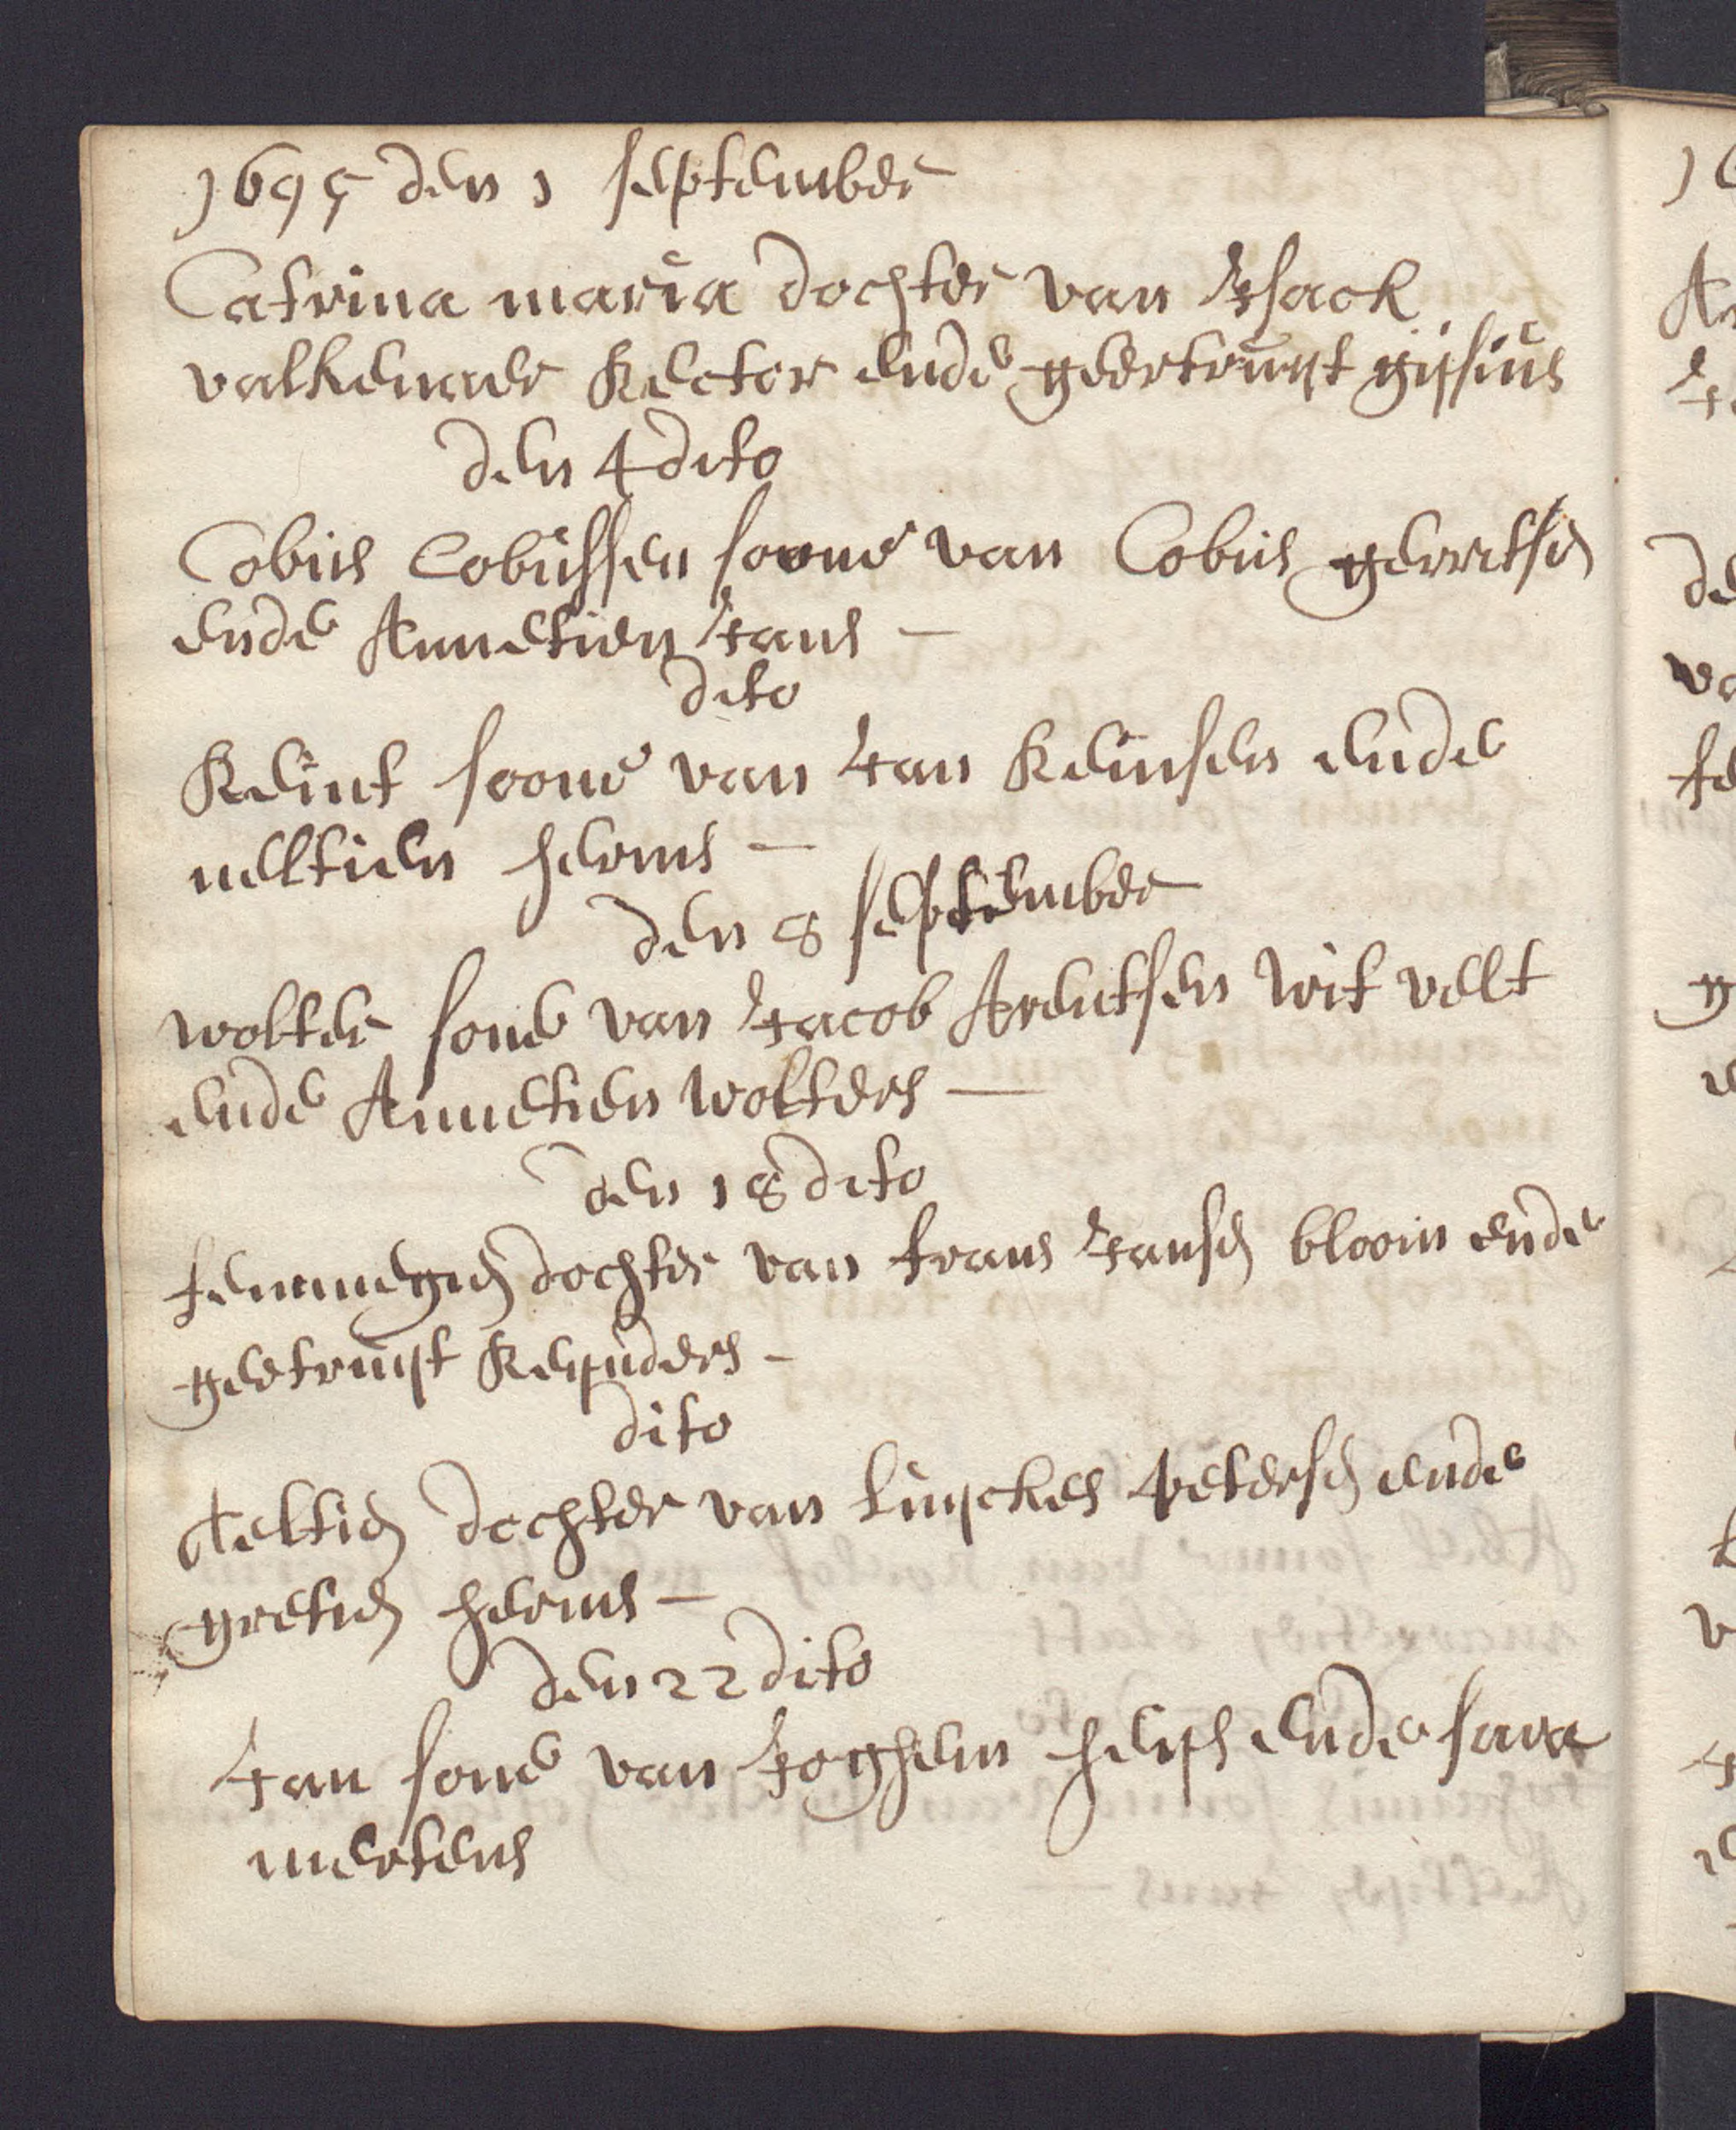 1695 den 1 september
Catrina maria dochter van Isack
valkenaer Rector ende geertruijt gijsius
den 4 dito
Cobus Cobussen soone van Cobus gerritsen
ende Annetien Jans —
dito
Reint soone van Jan Reinsen ende
neltien herms —
den 8 september
wolter sone van Jacob Arentsen wit velt
ende Annetien wolters —
den 18 dito
femmegien dochter van frans Jansen bloom ende
geetruijt Reijnders -
dito
Aeltien dochter van Luijckes petersen ende
gretien herms —
den 22 dito
Jan sone van Jochem heijs ende sara
mertens